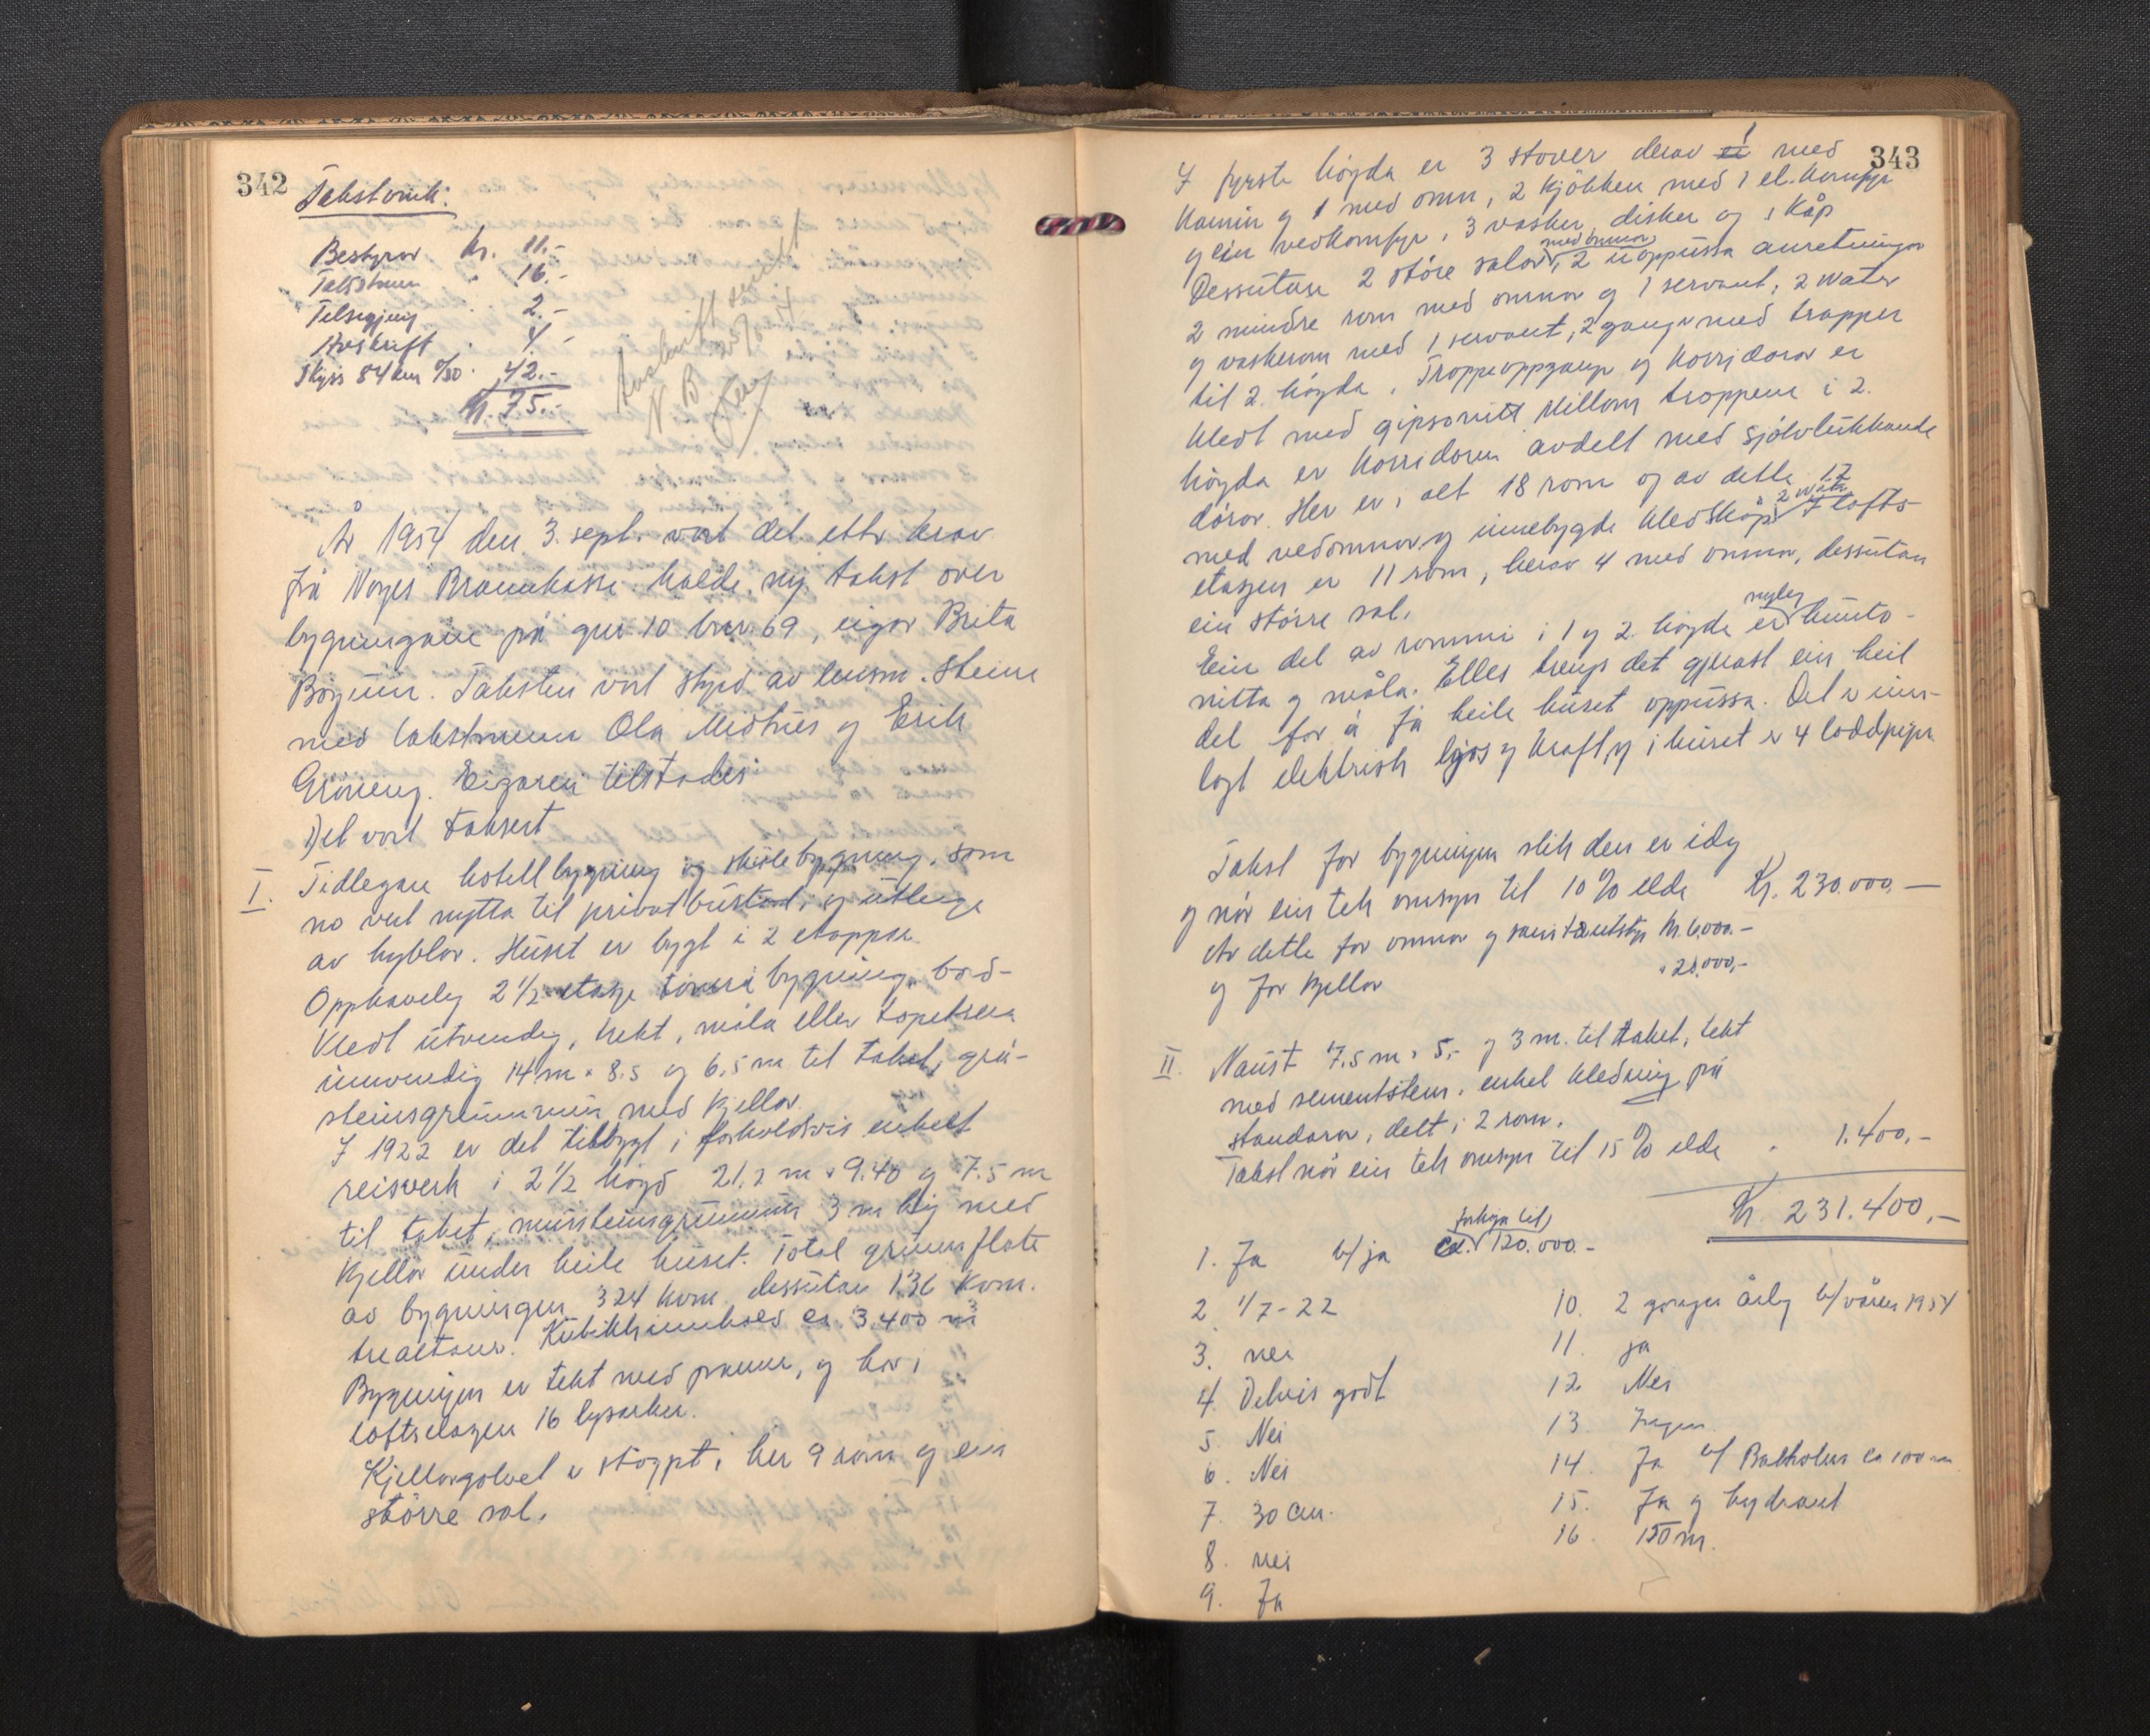 342
Takstomk:
Bestyrar Kr. 11.-
Takstmenn " 16.-
Tilsegjing " 2.-
Avskrift " 4.-
Skyss 84 km 0/50 " 42.-
Kr. 75.-
Avskrift sendt
25/9 54
N B
År 1954 den 3. sept. vart det etter krav
frå Norges Brannkasse halde ny takst over
bygningane på gnr 10 bnr 69, eigar Brita
Bøyum. Taksten vart styrd av lensm. Steine
med takstmenn Ola Midtnes og Erik
Grøneng. Eigaren tilstades.
Det vart taksert
I. Tidlegare hotellbygning og skulebygning, som
no vert nytta til privatbustad, og utleige
av hyblar. Huset er bygt i 2 etappar.
Opphaveleg 2 1/2 etasje tømra bygning, bord-
kledt utvendig, trekt, måla eller tapetsera
innvendig 14 m x 8.5 og 6.5 m til taket, grå-
steinsgrunnmur med kjellar.
I 1922 er det tilbygt i forholdsvis enkelt
reisverk i 2 1/2 høgd 21.2 m x 9.40 og 7.5 m
til taket, mursteinsgrunnmur 3 m høg med
kjellar under heile huset. Total grunnflate
av bygningen 324 kvm. dessutan 136 kvm.
trealtaner. Kubikkinnhald ca 3.400 m³
Bygningen er tekt med panner, og har i
loftsetasjen 16 lysarker.
Kjellargolvet er støypt, her 9 rom og ein
større sal.
343
I fyrste høgda er 3 stover derav 1 med
kamin og 1 med omn, 2 kjøkken med 1 el. komfyr
og ein vedkomfyr, 3 vasker, disker og skåp
Dessutan 2 støre salar med omnar, 2 uoppussa anretningar
2 mindre rom med omnar og 1 servant, 2 water
og vaskerom med 1 servant, 2 gangar med trapper
til 2. høgda. Trappeoppgange og korridorar er
kledt med gipsonitt. Millom trappene i 2.
høgda er korridoren avdelt med sjølvlukkande
dører. Her er i alt 18 rom og av dette 12
med vedomnar og innebygde kledskåp, 2 water I lofts-
etasjen er 11 rom, herav 4 med omnar, dessutan
ein større sal.
Ein del av rommi i 1 og 2. høgda er nyleg hunto-
nitta og måla. Elles trengs det gjenast ein heil
del for å få heile huset oppussa. Det er inn-
lagt elektrisk ljos og kraft, og i huset er 4 loddpiper
Takst for bygningen slik den er idag
og når ein tek omsyn til 10 % elde Kr. 230.000.—
Av dette for omnar og sanitærutstyr kr. 6.000.-
og for kjellar " 20.000,-
II. Naust 7.5 m x 5.- og 3 m. til taket, tekt
med sementstein, enkel kledning på
standarar, delt i 2 rom.
Takst når ein tek omsyn til 15 % elde " 1.400.-
Kr 231.400,-
1. Ja b/ ja forhøya til 120.000.-
2. 1/7-22
3. nei
4. Delvis godt
5. Nei
6. Nei
7. 30 cm.
8. nei
9. Ja
10. 2 gonger årleg b/ våren 1954
11. ja
12. Nei
13. Ingen
14. Ja b/ Balholm ca 100 m
15. Ja og hydrant
16. 150 m.